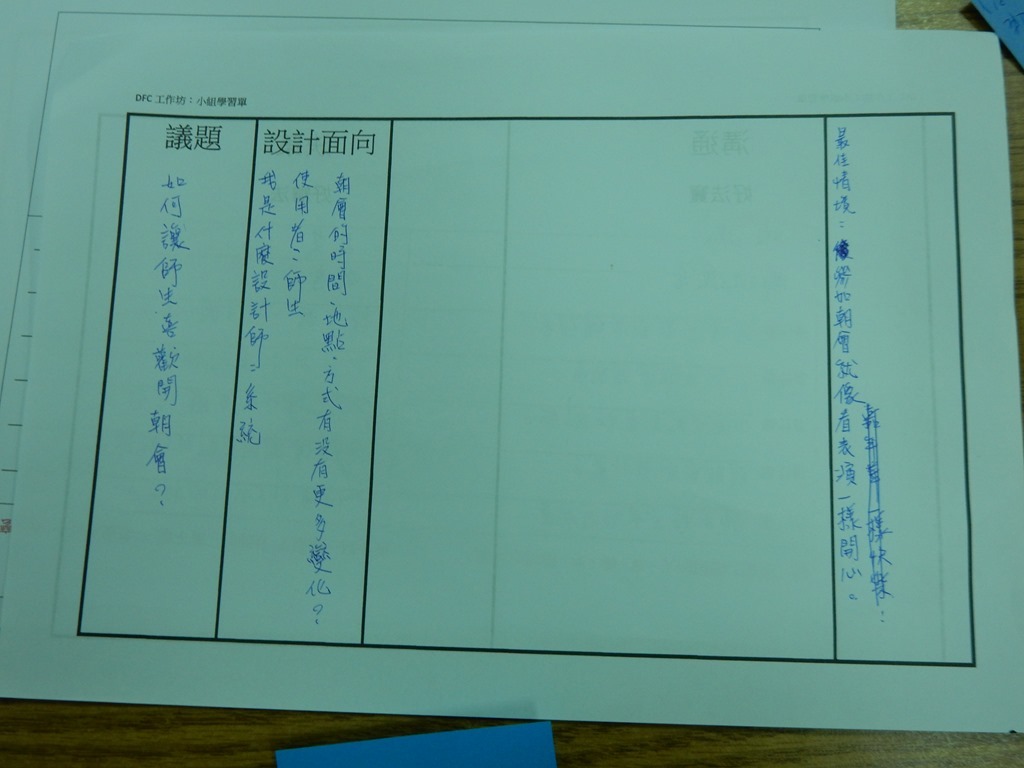 DFC 工作坊：小組學習單
議題
如何讓師生喜歡開朝會？
設計面向
朝會的時間、地點、方式有沒有更多變化？
使用者：師生
我是什麼設計師：系統
最佳情境：參加朝會就像看表演一樣開心。
嘉年華一樣快樂
溝通
好法寶